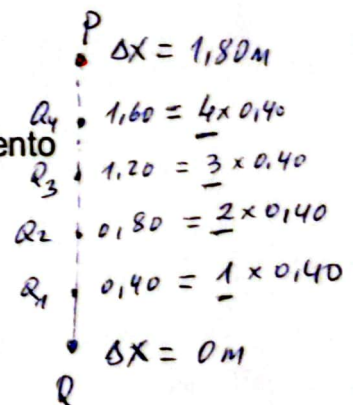 P
ΔX = 1,80m
Q4 1,60 = 4 x 0,40
ento
Q3 1,20 = 3 x 0.40
Q2 0,80 = 2 x 0,40
Q1 0,40 = 1 x 0,40
ΔX = 0m
Q